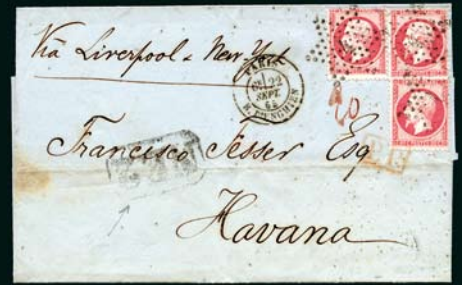 Via Liverpool & New York
PARIS
22
SEPT.
64
R. D'ENGHIEN
20
Francisco Tesser Esq
P.P.
Havana